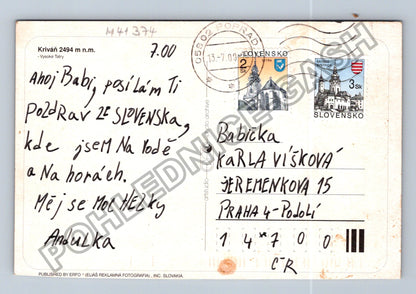 M41374
Kriváň 2494 m n.m.
- Vysoké Tatry
7.00
Ahoj Babi, posílám Ti
pozdrav ze SLOVENSKA,
kde jsem Na vodě
a Na horách.
Měj se moc HEZKY
Andulka
058 02 POPRAD 2
13.-7.00
SLOVENSKO
2 Sk
3 Sk
SLOVENSKO
Babička
KARLA VÍŠKOVÁ
JEREMENKOVA 15
PRAHA 4-Podolí
1 4 7 0 0
ČR
POHLEDNICE-SGASH
PUBLISHED BY ERFO ® (ELIÁŠ REKLAMNÁ FOTOGRAFIA), INC. SLOVAKIA.